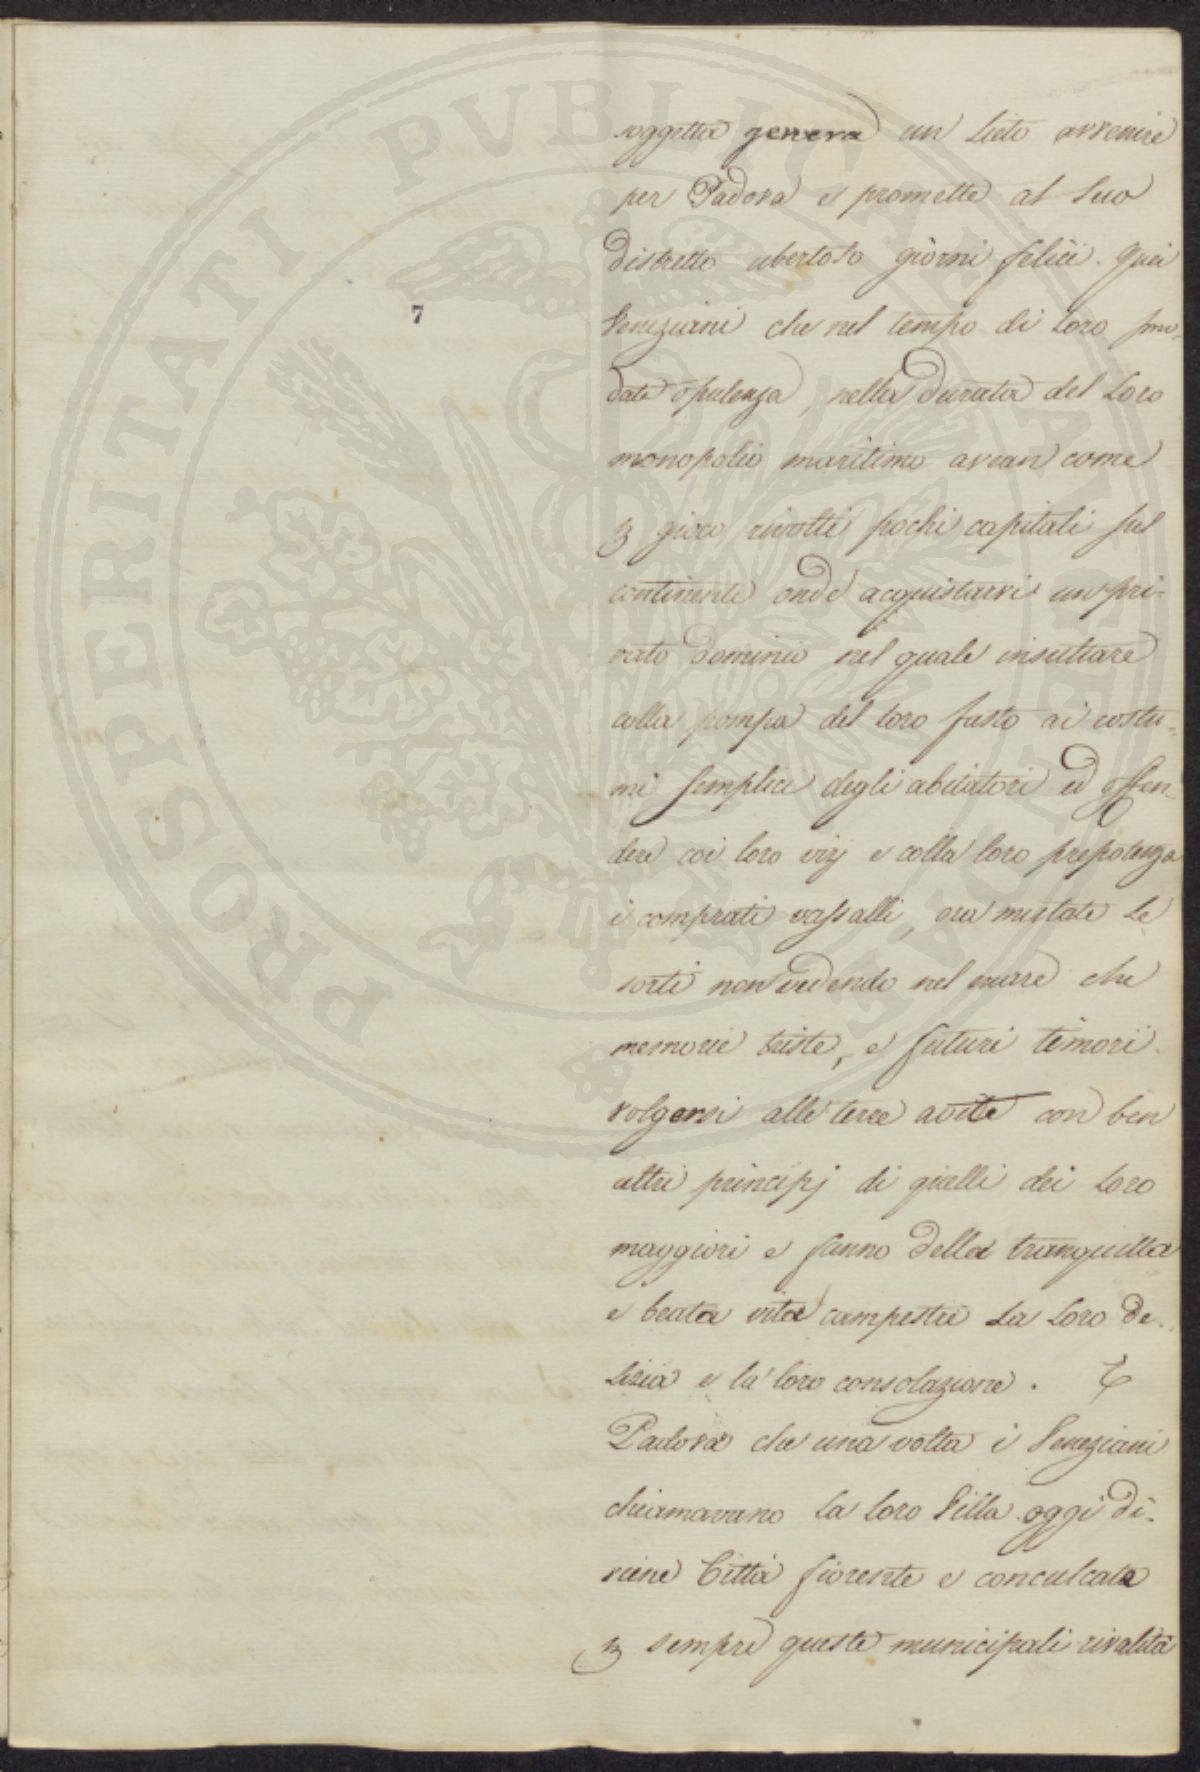 PROSPERITATI PVBLICAE AVGENDAE
7
soggetta genera un lieto avvenire
per Padova e promette al suo
distretto ubertoso giorni felici. Quei
Veneziani che nel tempo di loro smo-
data opulenza, nella durata del loro
monopolio maritimo avean come
per gioco rivolti pochi capitali sul
continente onde acquistarvi un pri-
vato dominio nel quale insultare
colla pompa del loro fasto ai costu-
mi semplici degli abitatori ed offen-
dere coi loro vizj e colla loro prepotenza
i comprati vassalli, ora mutate le
sorti non vedendo nel mare che
memorie triste, e futuri timori
volgersi alle terre avite con ben
altri principj di quelli dei loro
maggiori e fanno della tranquilla
e beata vita campestre la loro de-
lizia e la loro consolazione.
Padova che una volta i Veneziani
chiamavano la loro Villa oggi di-
viene Città fiorente e conculcate
per sempre queste municipali rivalità